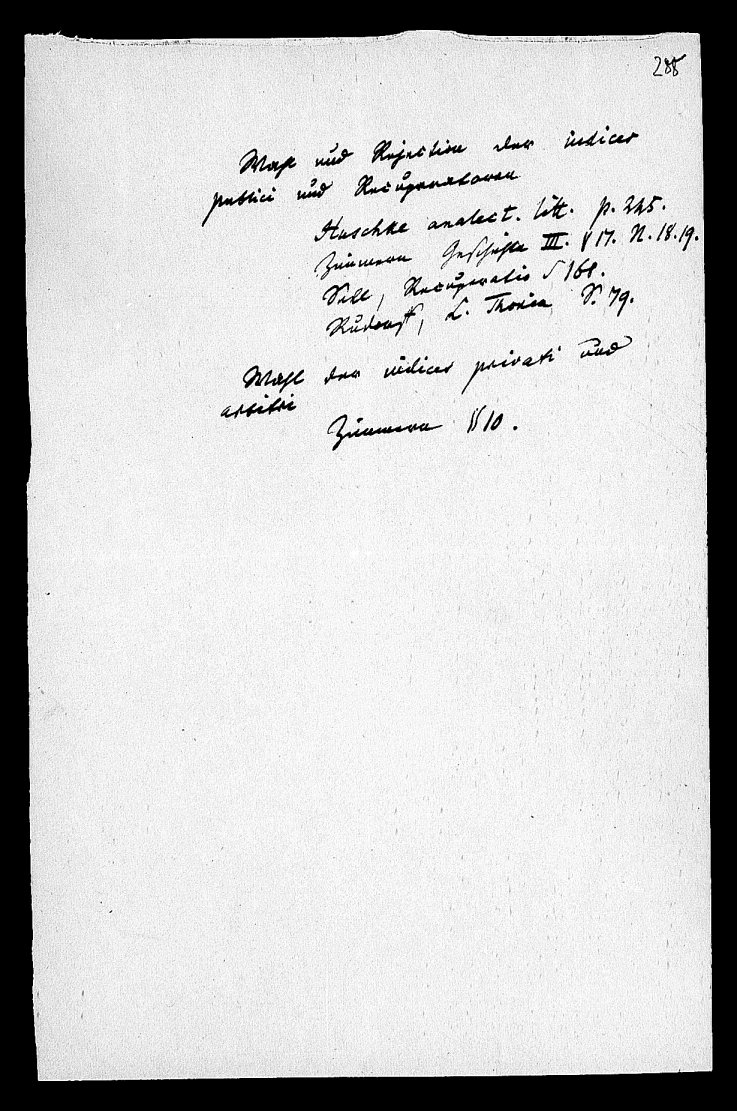 288
Wahl und Rejection der iudices
publici und Recuperatoren
Huschke analect. litt. p. 225.
Zimmern Geschichte III. § 17. N. 18. 19.
Sell, Recuperatio S 168.
Rudorff, L. Thoria S. 79.
Wahl der iudices privati und
arbitri
Zimmern § 10.